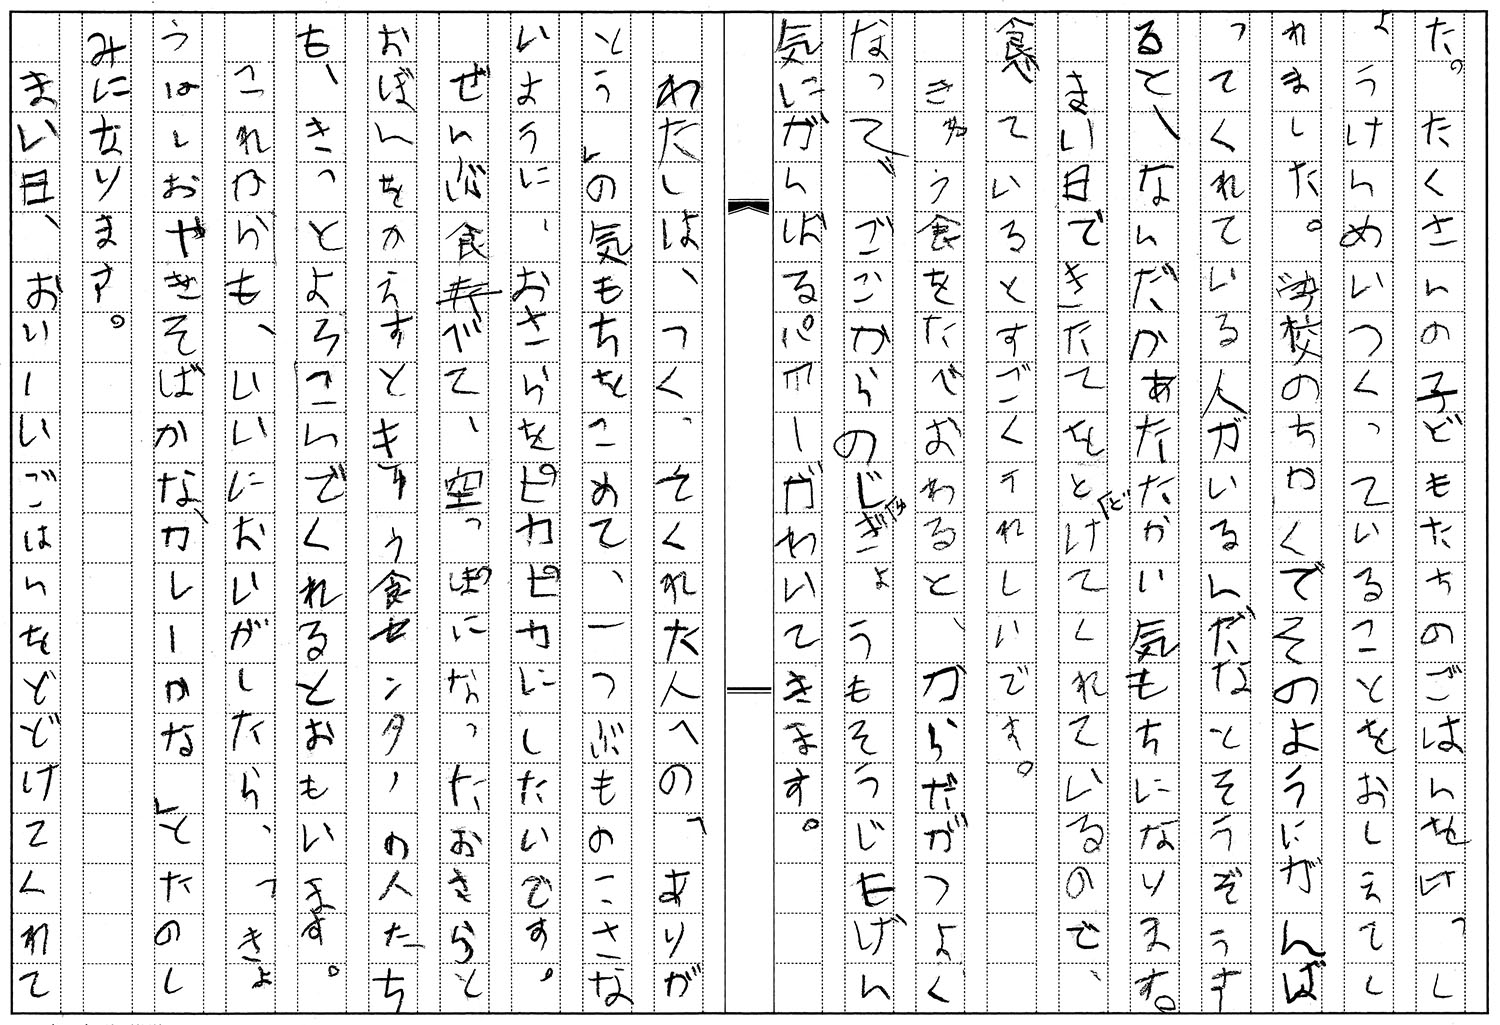 た。たくさんの子どもたちのごはんをいっし
ょうけんめいつくっていることをおしえてく
れました。学校のちかくでそのようにがんば
ってくれている人がいるんだなとそうぞうす
ると、なんだかあたたかい気もちになります。
まい日できたてをとどけてくれているので、
食べているとすごくうれしいです。
きゅう食をたべおわると、からだがつよく
なって、ごごからのじゅぎょうもそうじもげん
気にがんばるパワーがわいてきます。
わたしは、つくってくれた人への「ありが
とう」の気もちをこめて、一つぶものこさな
いように、おさらをピカピカにしたいです。
ぜんぶ食べて、空っぽになったおさらと
おぼんをかえすときゅう食センターの人たち
も、きっとよろこんでくれるとおもいます。
これからも、いいにおいがしたら、「きょ
うはしおやきそばかな、カレーかな」とたのし
みになります。
まい日、おいしいごはんをとどけてくれて